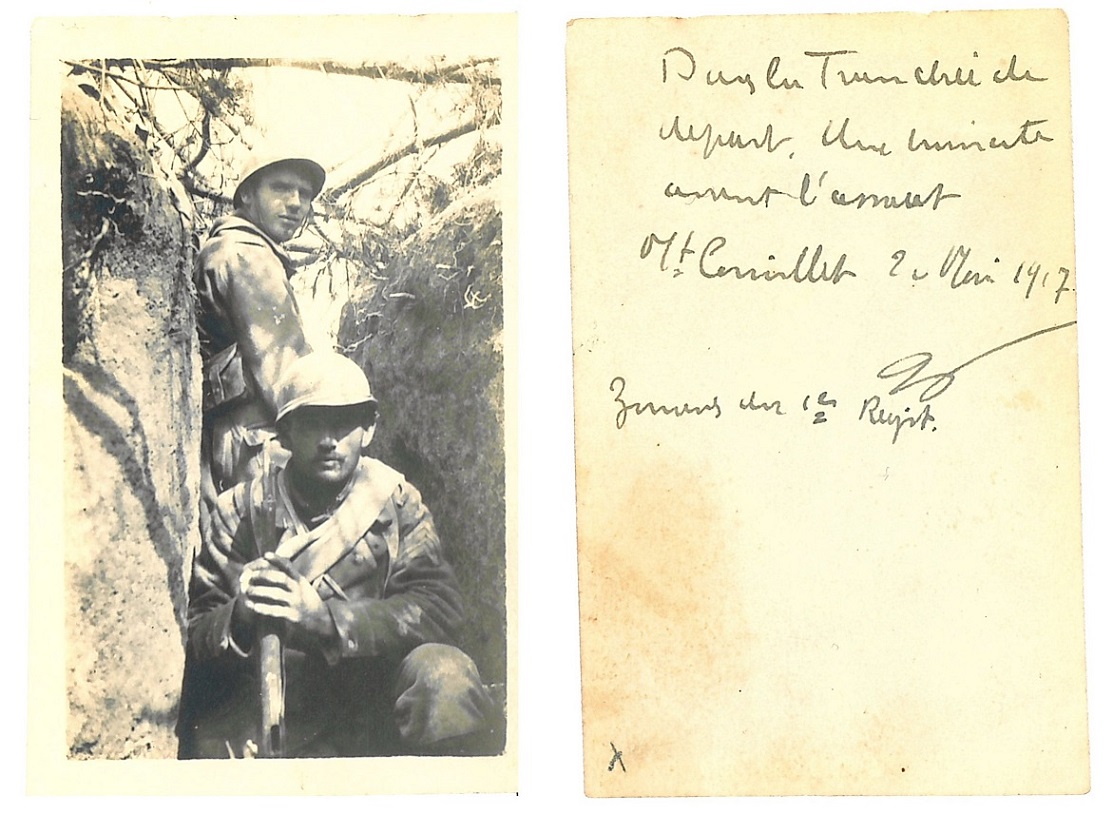 Dans la Tranchée de
depart. Une minute
avant l'assaut
Mt Cornillet 20 Mai 1917
Zouaves du 1er Regt.
X